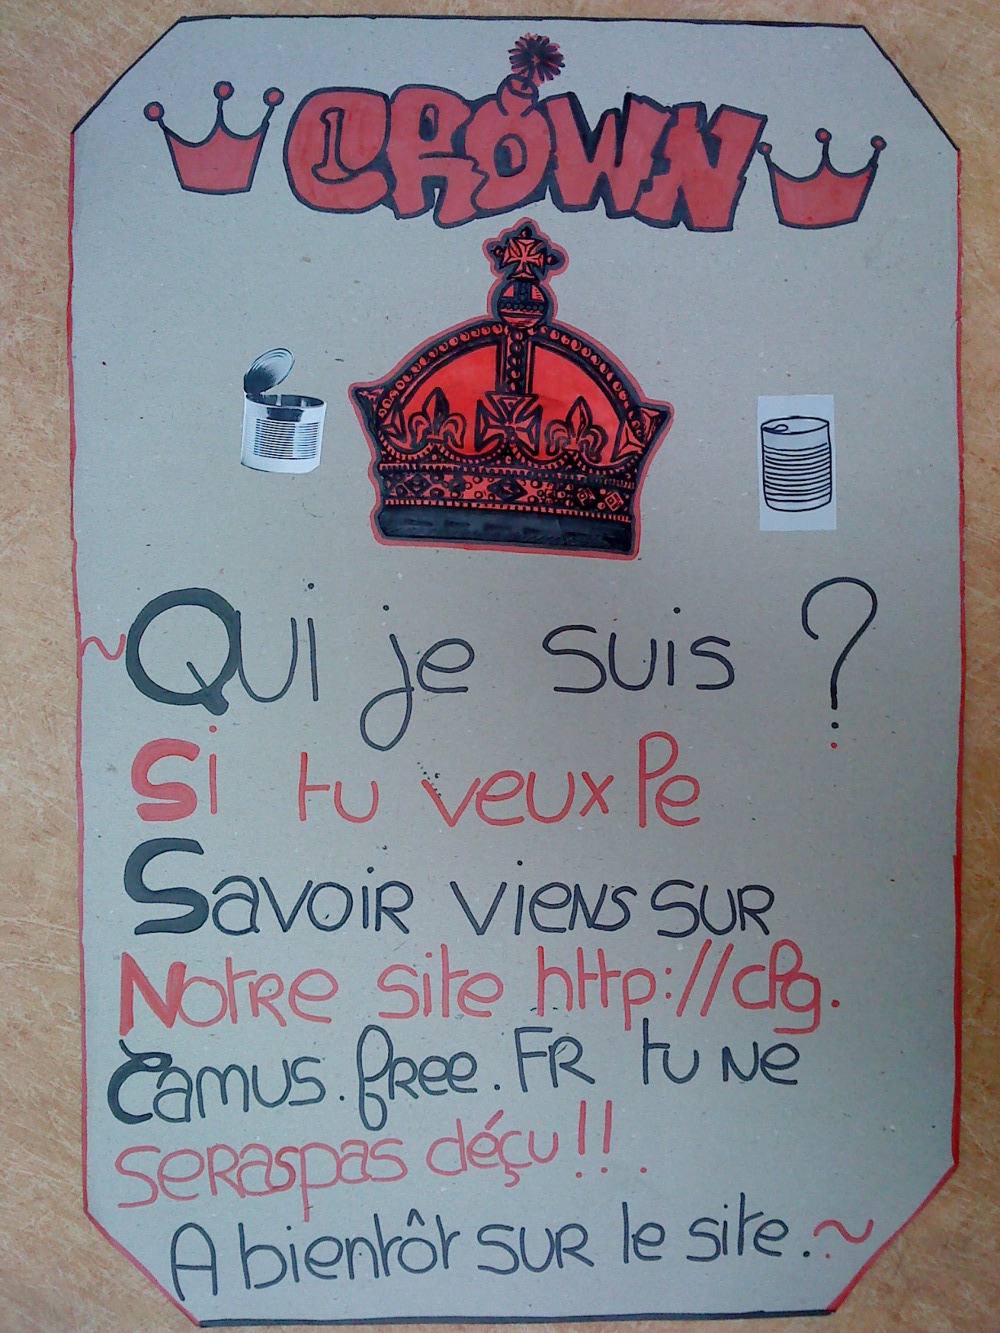 CROWN
Qui je suis ?
Si tu veux Pe
Savoir viens sur
Notre site http://cpg.
Camus.free.FR tu ne
seras pas déçu!!.
A bientôt sur le site.